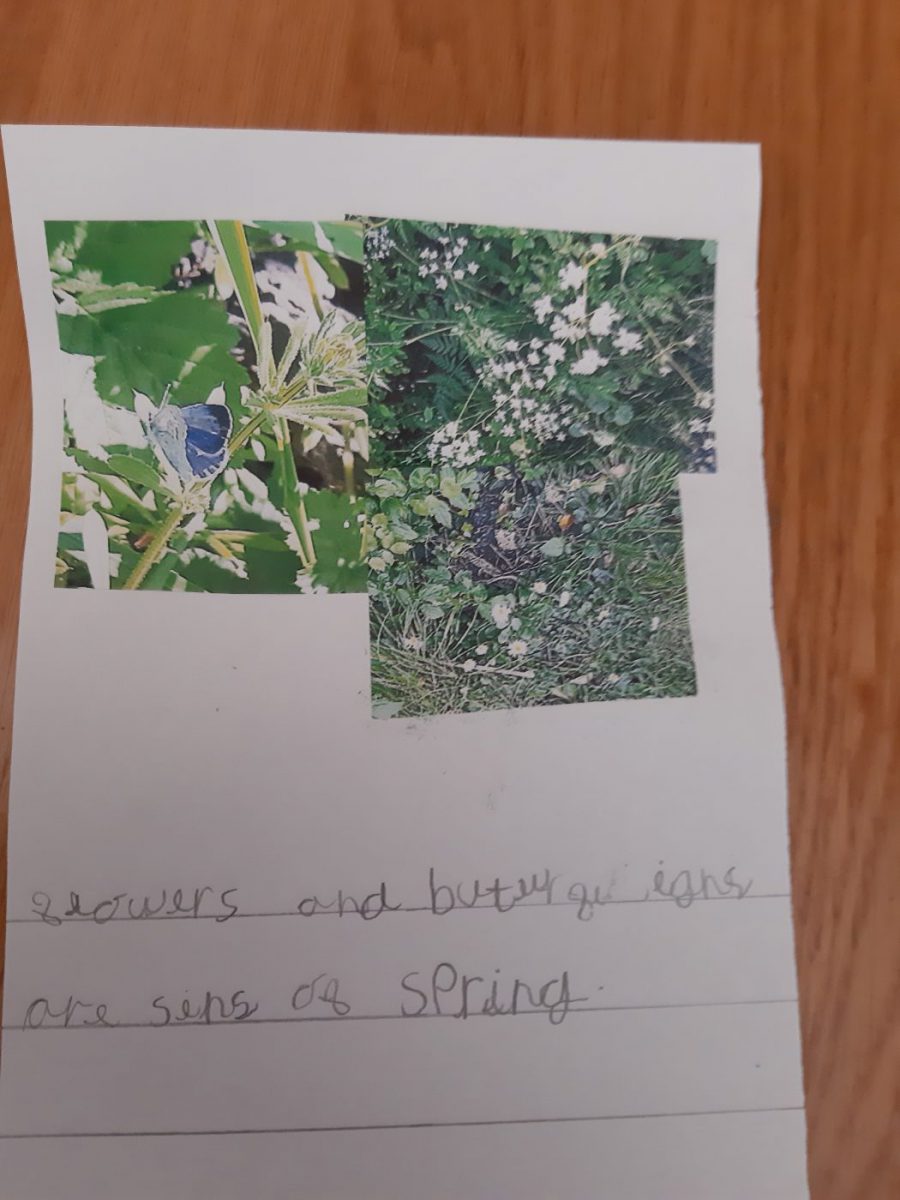 flowers and buturfli igns
are sins of spring.